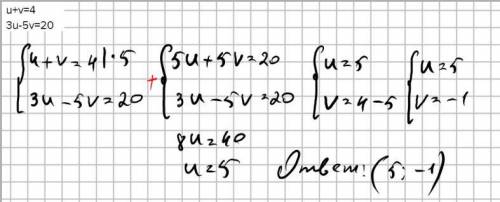 u+v=4
3u-5v=20
{u+v=4|·5 + {5u+5v=20 {u=5 {u=5
{3u-5v=20 {3u-5v=20 {v=4-5 {v=-1
8u=40
u=5 Ответ: (5; -1)